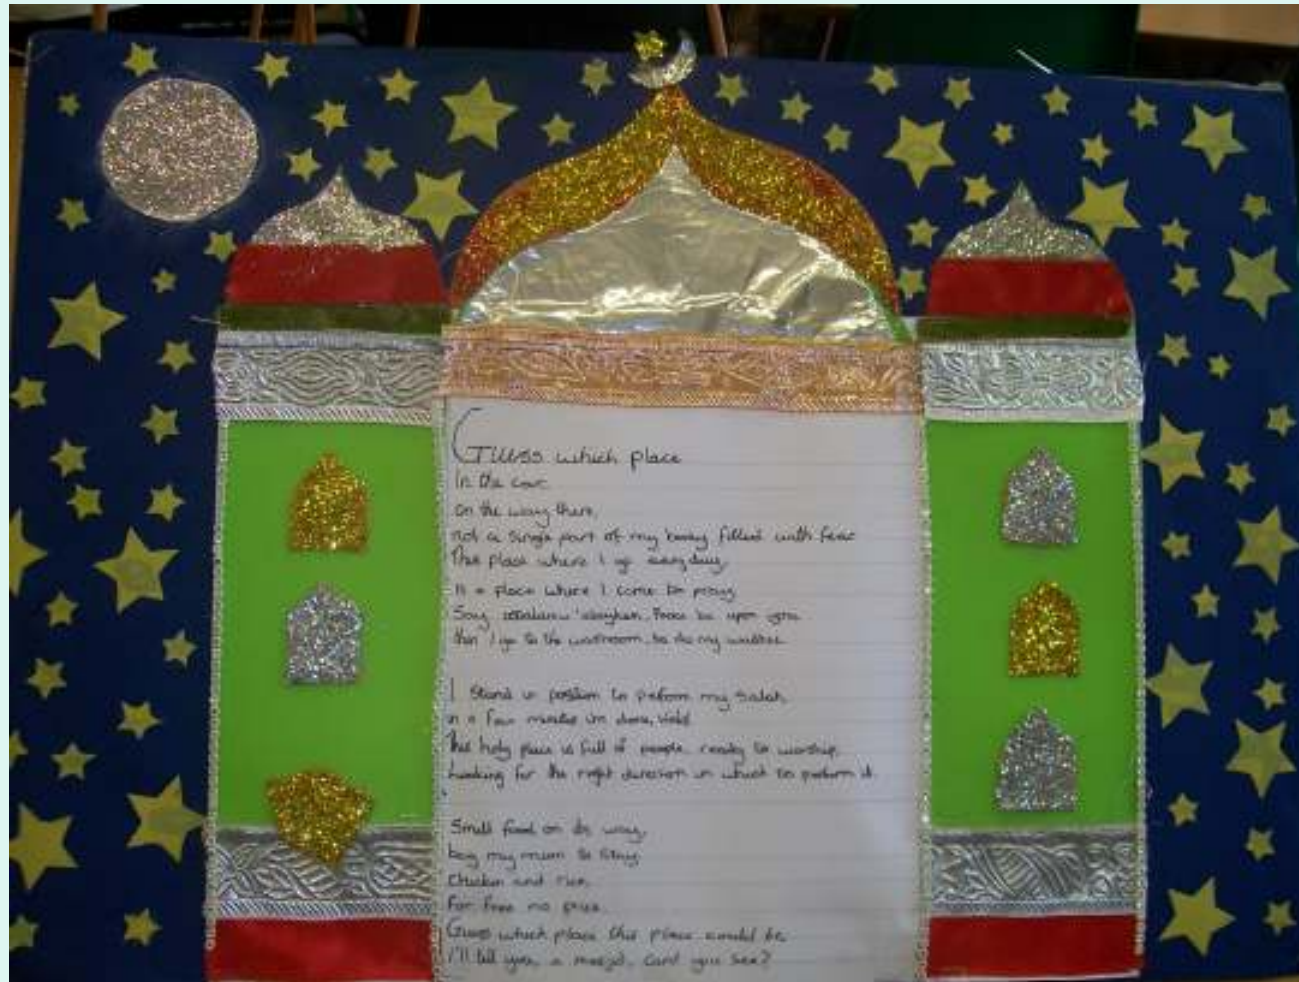 Guess which place
In the car,
on the way there,
not a single part of my body filled with fear
This place where I go everyday,
is a place where I come to pray
Say, assalamu 'alaykum, Peace be upon you
then I go to the washroom, to do my
I stand in position to perform my Salah
in a few minutes im done,
This holy place is full of people, ready to worship,
Looking for the right direction in which to perform it.
Smell food on its way,
beg my mum to stay
Chicken and rice,
For free no price
Guess which place this place could be
I'll tell you, a masjid, cant you see?